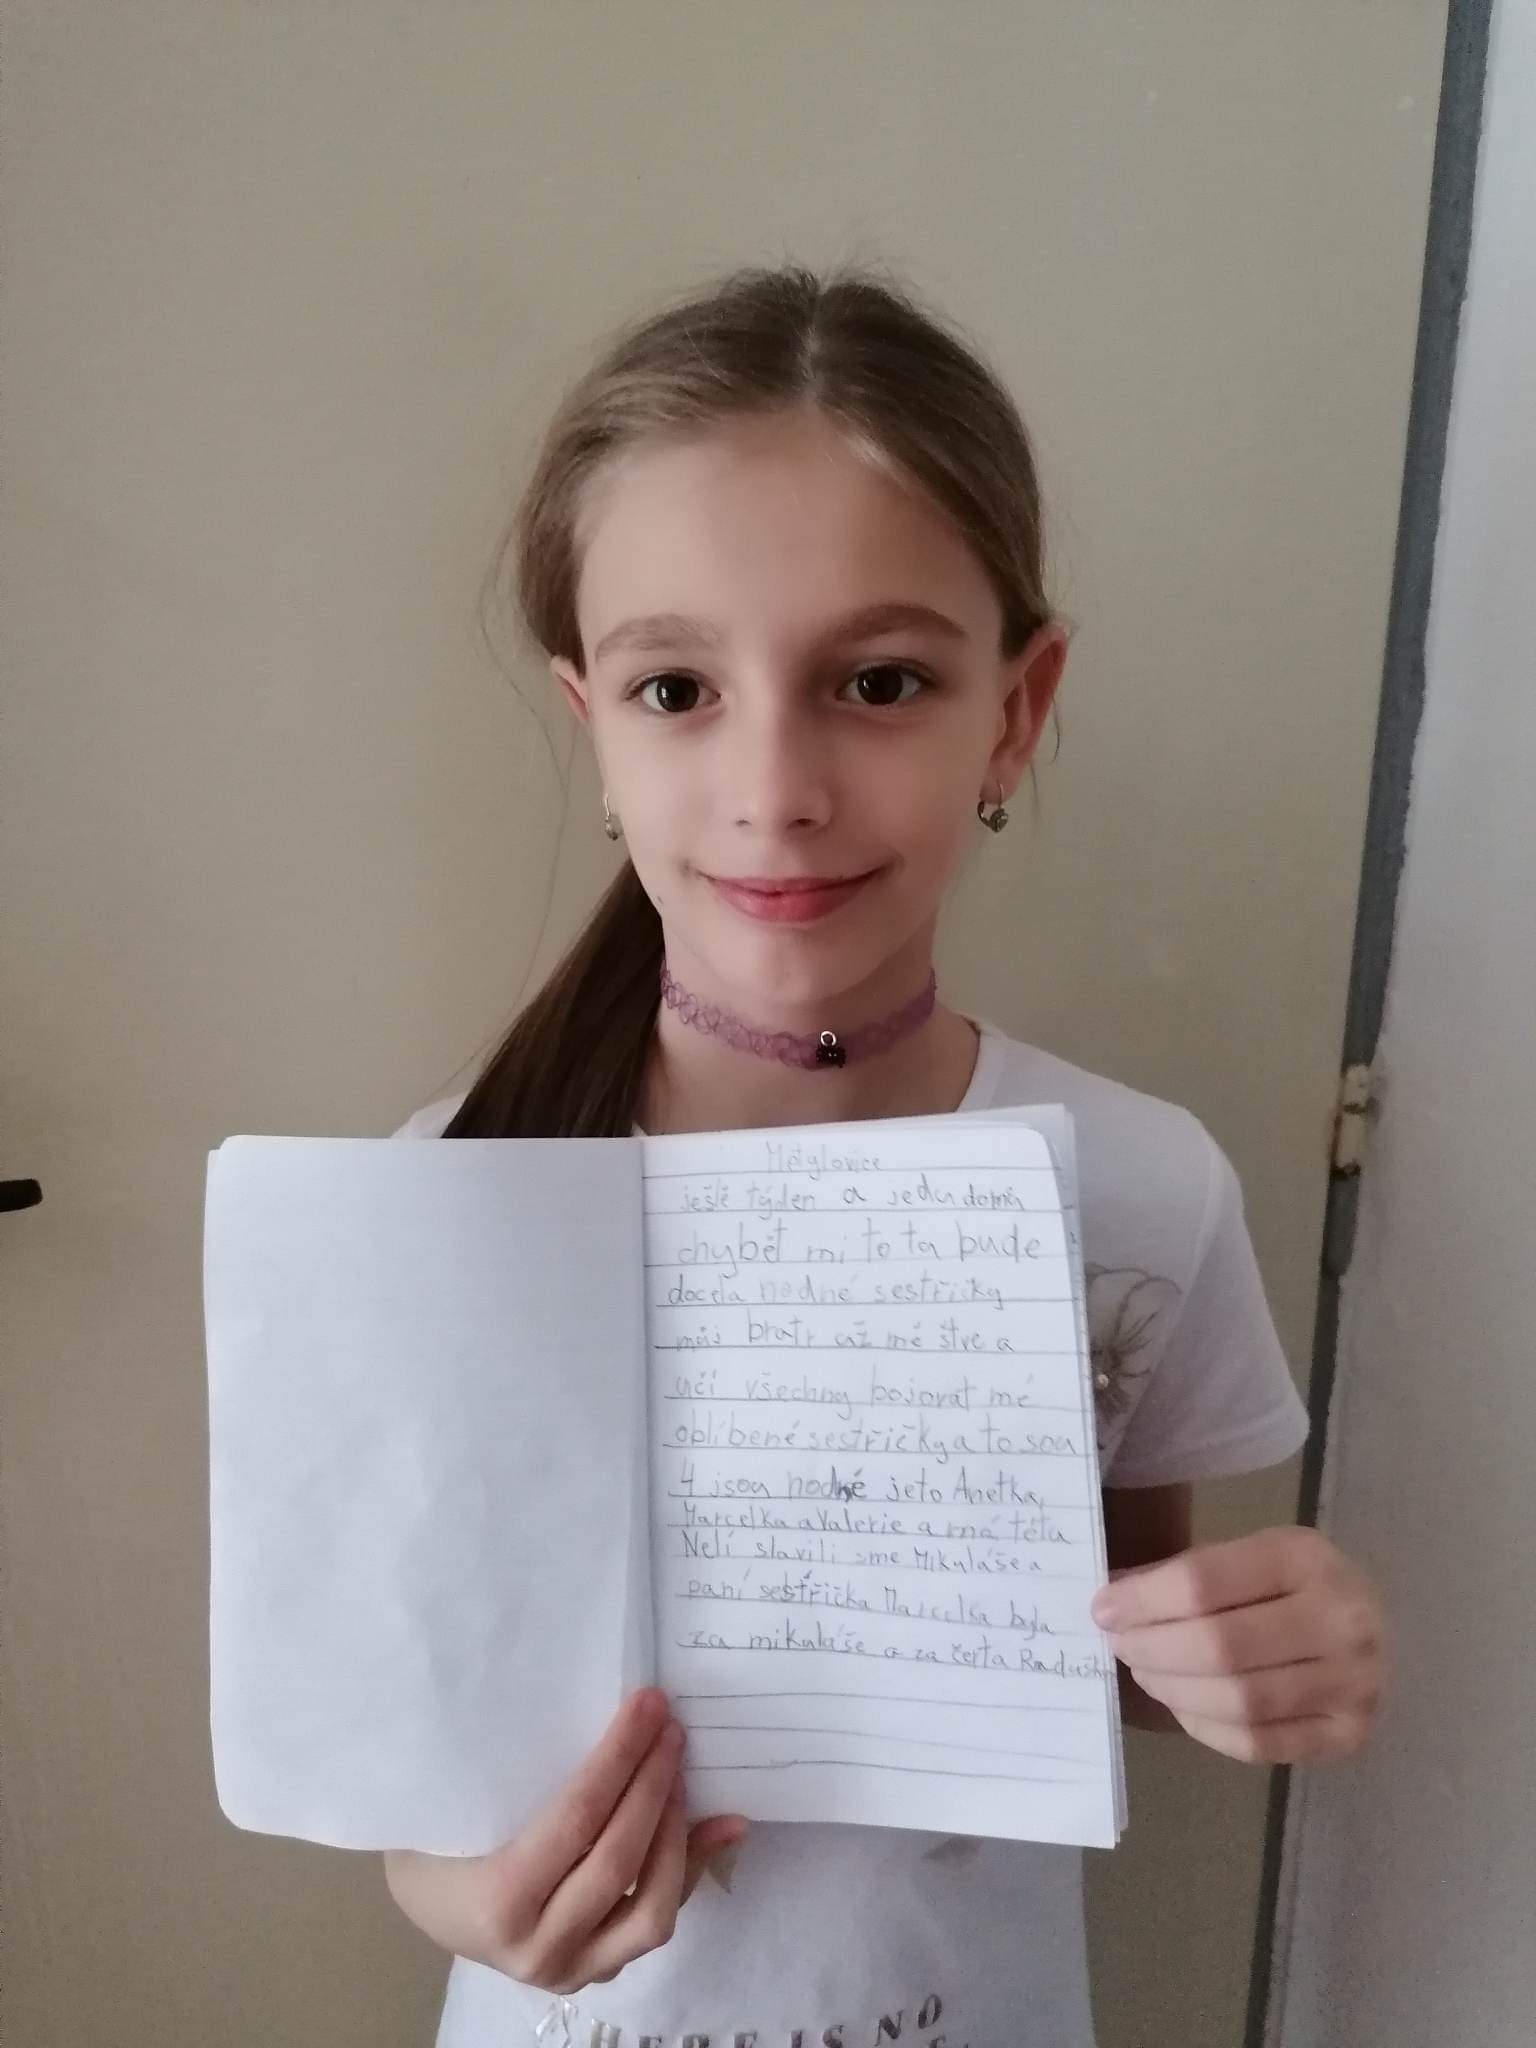 Mětylovice
ještě týden a jedu domů
chybět mi to ta bude
docela hodné sestřičky
můj bratr až mě štve a
učí všechny bojovat mé
oblíbené sestřičky a to sou
4 jsou hodné jeto Anetka,
Marcelka a Valerie a má tétu
Nelí slavili sme Mikuláše a
paní sestřička Marcelka byla
za mikuláše a za čerta Radušk
HERE IS NO